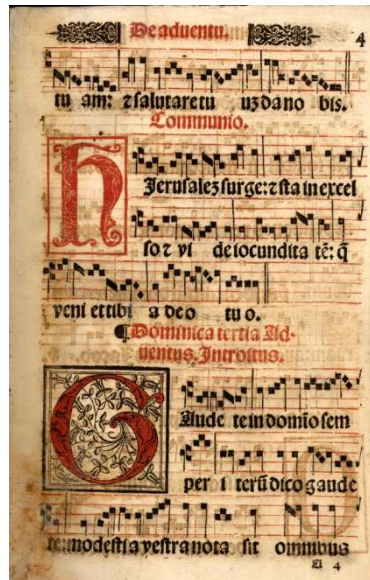 De aduentu. 4
tu am: ⁊ salutare tu uʒ da no bis.
Communio.
H Jerusaleʒ surge: ⁊ sta in excel
so ⁊ vi de iocundita tē: q̄
veni et tibi a deo tuo.
¶ Dominica tertia Ad-
uentus. Introitus.
G Aude te in domīo sem
per i terū dico gaude
te: modestia vestra nota sit omnibus
A 4